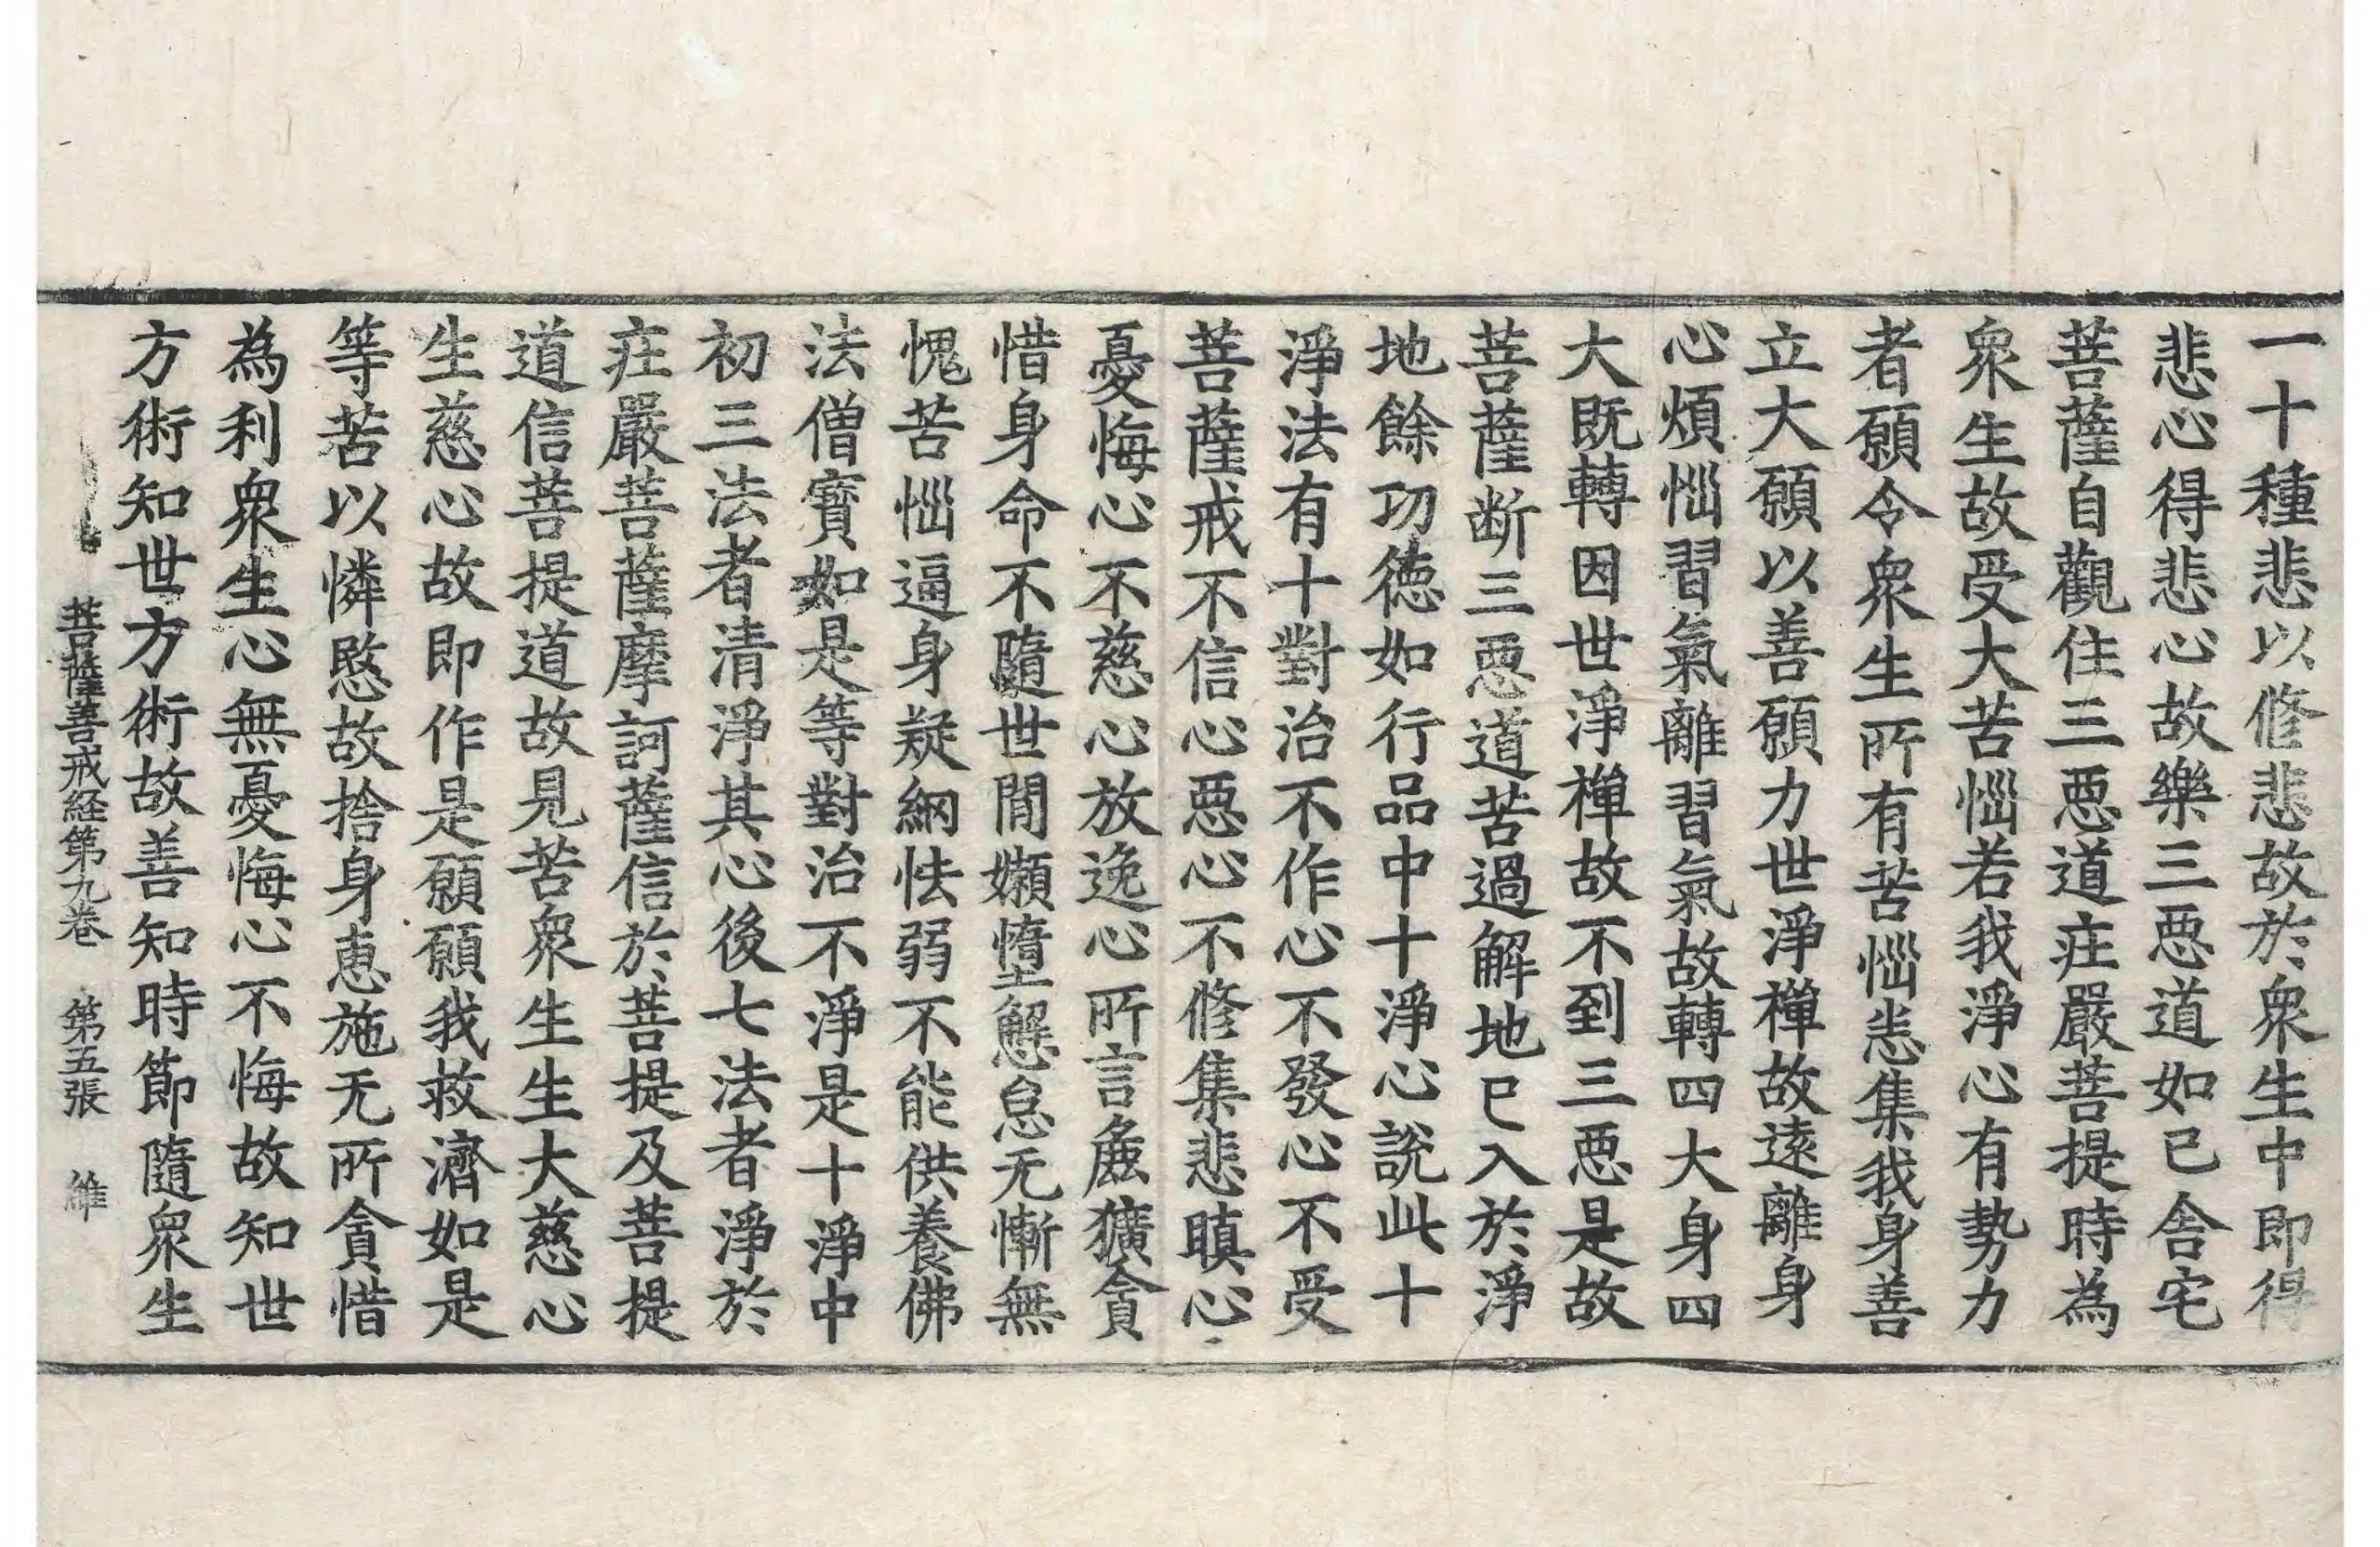 一十種悲以修悲故於衆生中即得
悲心得悲心故樂三惡道如已舍宅
菩薩自觀住三惡道庄嚴菩提時為
衆生故受大苦惱若我淨心有勢力
者願令衆生所有苦惱悉集我身善
立大願以善願力世淨禪故遠離身
心煩惱習氣離習氣故轉四大身四
大既轉因世淨禪故不到三惡是故
菩薩断三惡道苦過解地已入於淨
地餘功德如行品中十淨心說此十
淨法有十對治不作心不發心不受
菩薩戒不信心惡心不修集悲瞋心
憂悔心不慈心放逸心所言麁獷貪
惜身命不隨世間嬾惰懈怠无慚無
愧苦惱逼身疑網怯弱不能供養佛
法僧寶如是等對治不淨是十淨中
初三法者清淨其心後七法者淨於
庄嚴菩薩摩訶薩信於菩提及菩提
道信菩提道故見苦衆生生大慈心
生慈心故即作是願願我救濟如是
等苦以憐愍故捨身恵施无所貪惜
為利衆生心無憂悔心不悔故知世
方術知世方術故善知時節隨衆生
菩薩善戒経第九卷 第五張 維